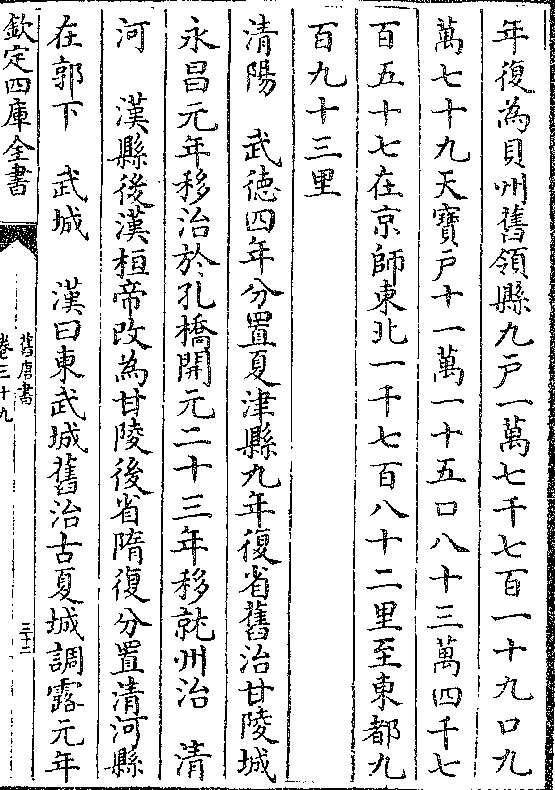 年復為貝州舊領縣九戸一萬七千七百一十九口九
萬七十九天寶戸十一萬一十五口八十三萬四千七
百五十七在京師東北一千七百八十二里至東都九
百九十三里
清陽　武德四年分置夏津縣九年復省舊治甘陵城
永昌元年移治於孔橋開元二十三年移就州治　清
河　漢縣後漢桓帝改為甘陵後省隋復分置清河縣
在郭下　武城　漢曰東武城舊治古夏城調露元年
欽定四庫全書
舊唐書
卷三十九
三十二